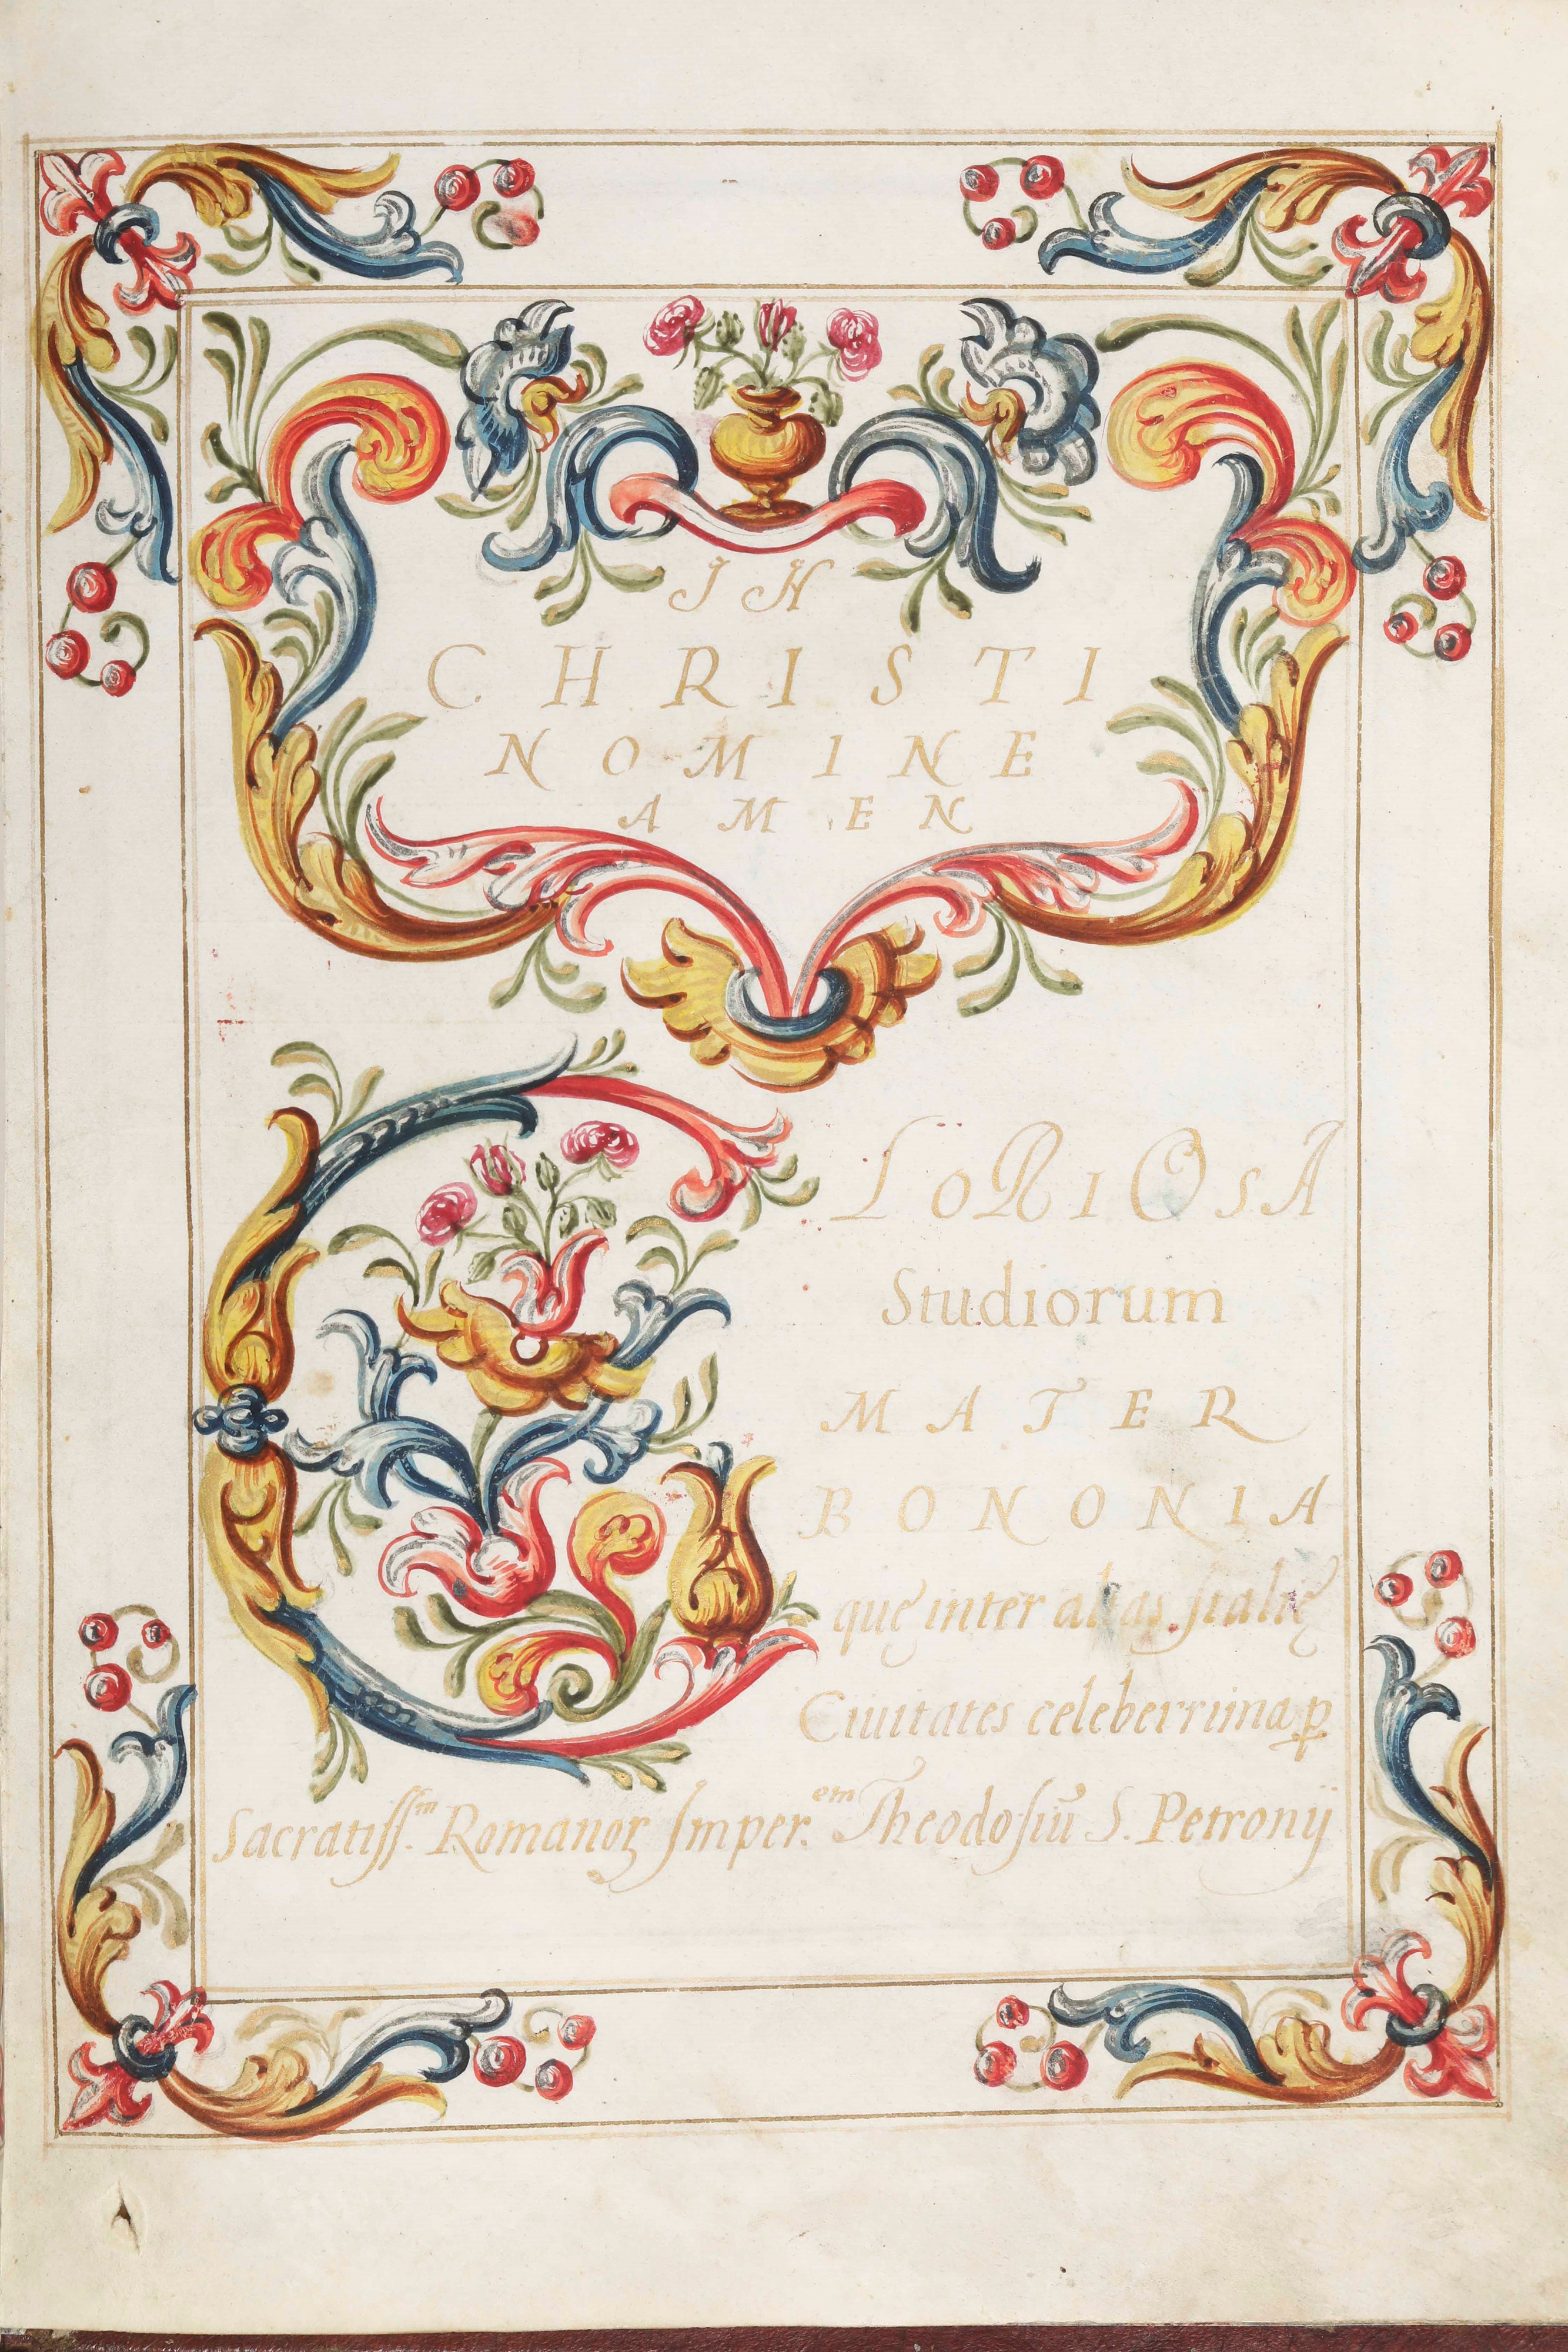 IN
CHRISTI
NOMINE
AMEN
GLORIOSA
Studiorum
MATER
BONONIA
quę inter alias Italię
Ciuitates celeberrima ꝑ
Sacratiss.ᵐ Romanoꝝ Imper.ᵉᵐ Theodosiū S. Petronij